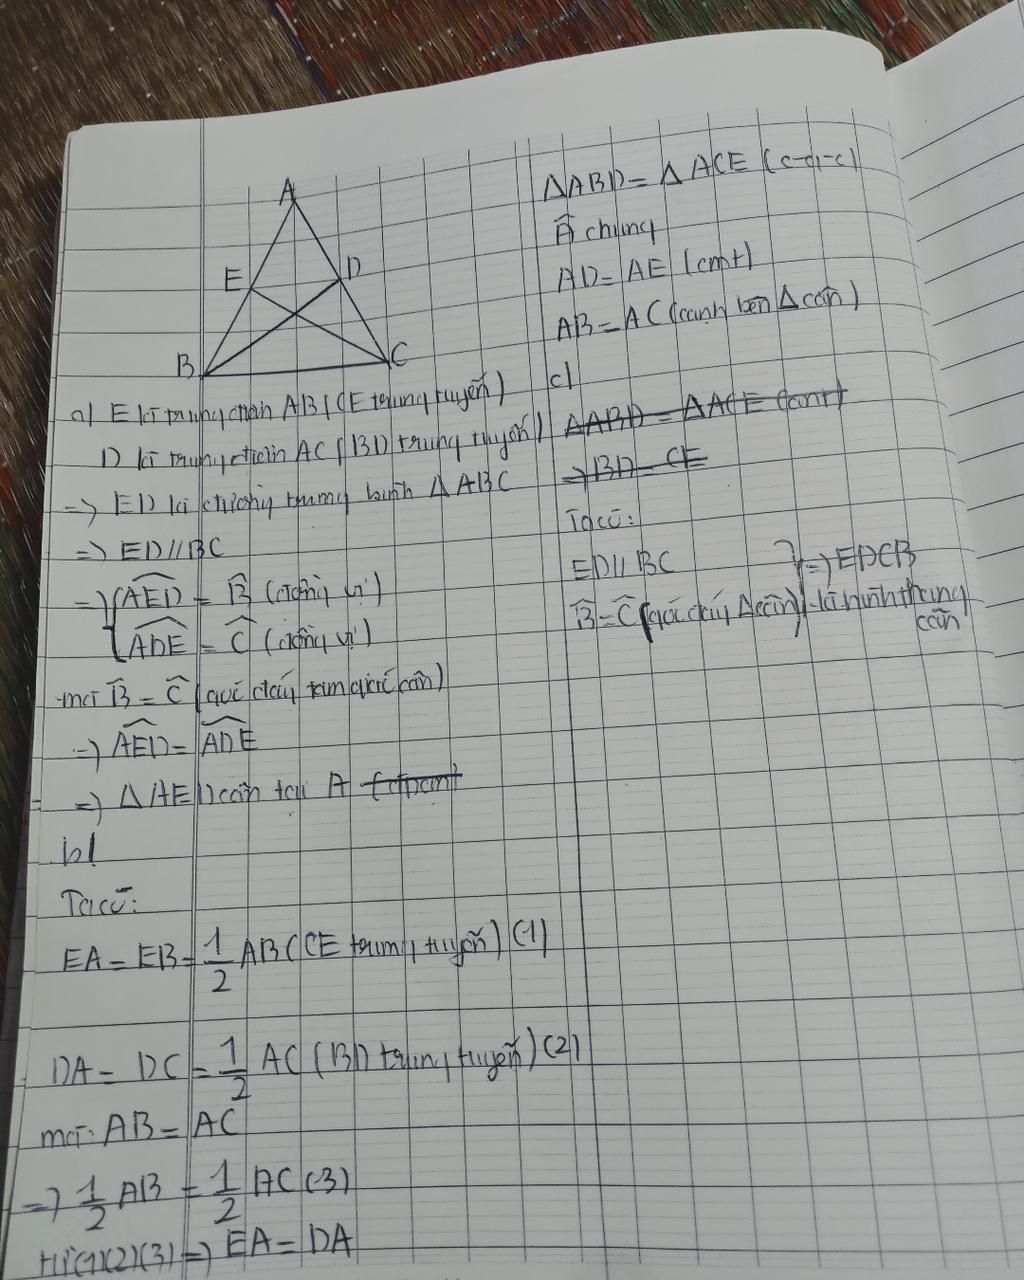 A
E
D
B
C
a) E là trung điểm AB (CE trung tuyến)
D là trung điểm AC (BD trung tuyến)
=> ED là đường trung bình Δ ABC
=> ED // BC
=> { AED = B (đồng vị)
ADE = C (đồng vị)
mà B = C (góc đáy tam giác cân)
=> AED = ADE
=> Δ AED cân tại A
b/
Ta có:
EA = EB = 1/2 AB (CE trung tuyến) (1)
DA = DC = 1/2 AC (BD trung tuyến) (2)
mà: AB = AC
=> 1/2 AB = 1/2 AC (3)
từ (1)(2)(3) => EA = DA
ΔABD = Δ ACE (c-g-c)
A chung
AD = AE (cmt)
AB = AC (cạnh bên Δ cân)
c/
ΔABD = ΔACE (cmt)
=> BD = CE
Ta có:
ED // BC
B = C (góc đáy Δ cân) } => EDCB
là hình thang
cân